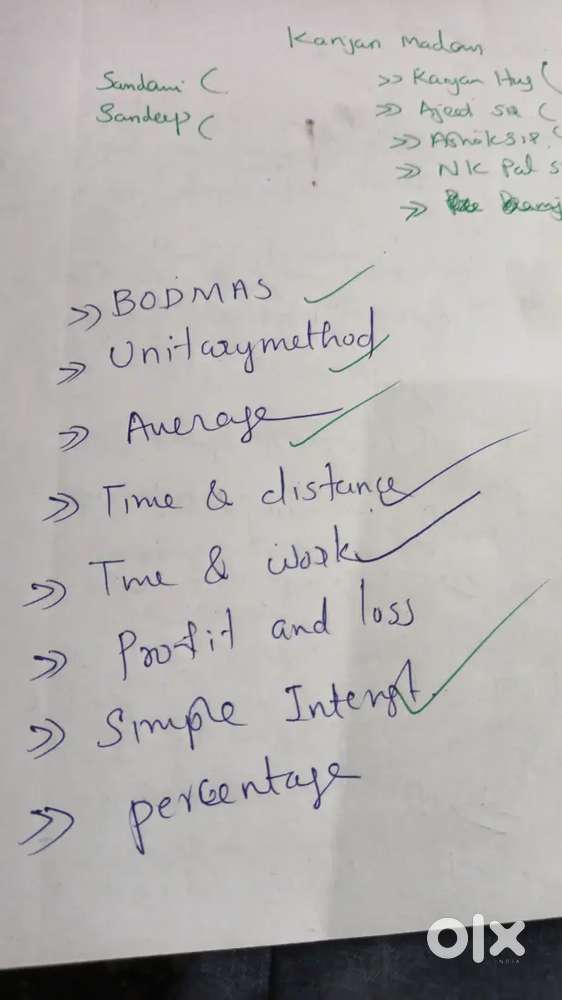 Kanjan madam
Sandami (
Sandeep (
>> Karjan Hus (
>> Ajeed sir (
>> Ashok sir (
>> NK Pal s
>>
>> BODMAS
>> Unitary method
>> Average
>> Time & distance
>> Tme & work
>> Profit and loss
>> Simple Interst
>> percentage
olx
INDIA